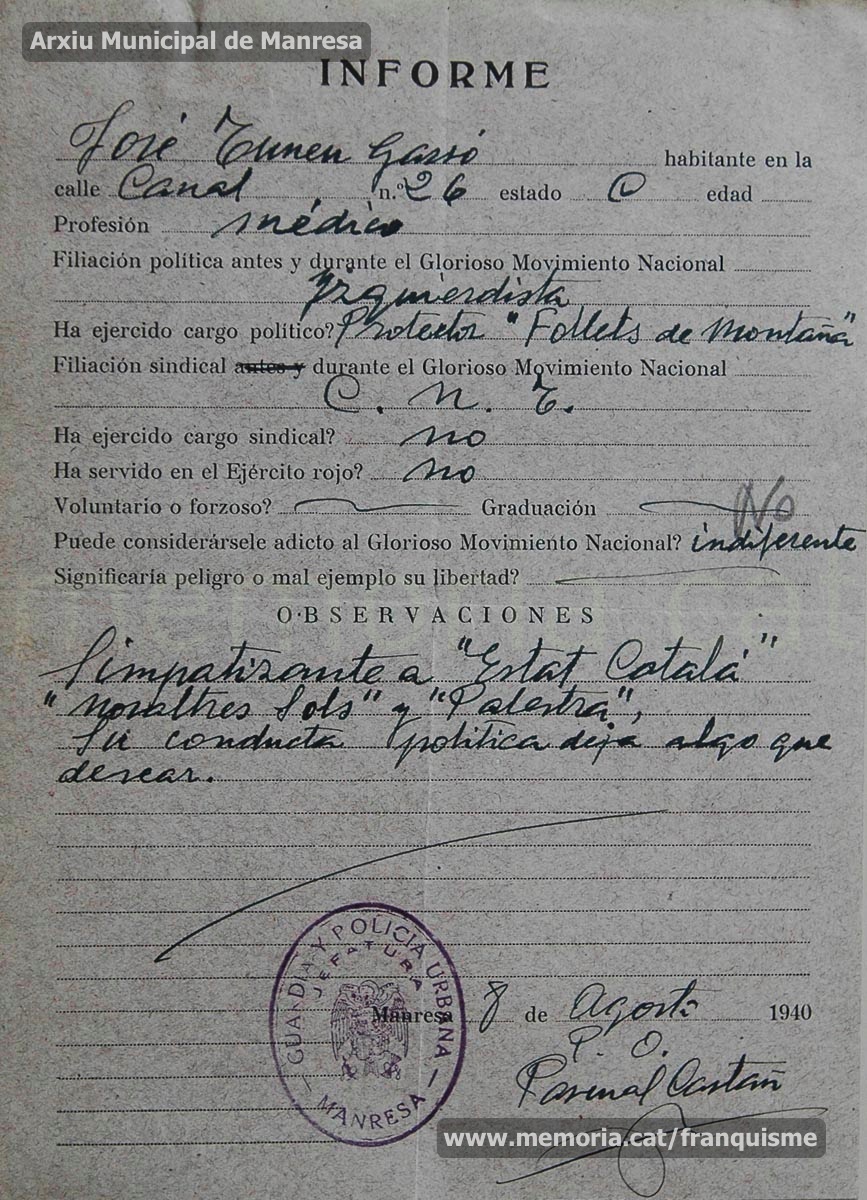 Arxiu Municipal de Manresa
INFORME
José Tuneu Gassó habitante en la
calle Canal n.º 26 estado C edad
Profesión médico
Filiación política antes y durante el Glorioso Movimiento Nacional
Yzquierdista
Ha ejercido cargo político? Protector "Follets de Montaña"
Filiación sindical antes y durante el Glorioso Movimiento Nacional
C. N. T.
Ha ejercido cargo sindical? no
Ha servido en el Ejército rojo? no
Voluntario o forzoso? Graduación No
Puede considerársele adicto al Glorioso Movimiento Nacional? indiferente
Significaría peligro o mal ejemplo su libertad?
OBSERVACIONES
Simpatizante a "Estat Catalá"
"Nosaltres Sols" y "Palestra",
Su conducta politica deja algo que
desear.
GUARDIA Y POLICIA URBANA
JEFATURA
MANRESA
Manresa 8 de Agosto 1940
P. O.
Pascual Castañ
www.memoria.cat/franquisme